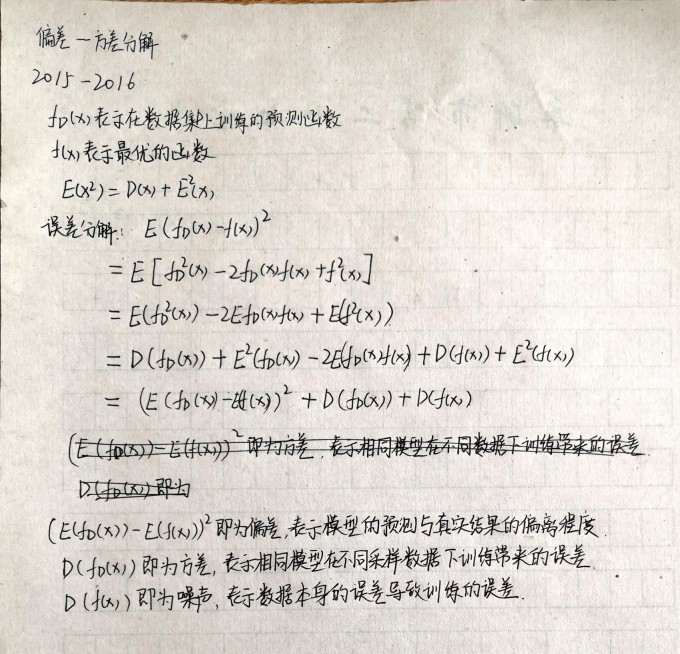 偏差一方差分解
2015-2016
fD(x)表示在数据集上训练的预测函数
f(x)表示最优的函数
E(x²)=D(x)+E²(x)
误差分解: E(fD(x)-f(x))²
=E[fD²(x)-2fD(x)f(x)+f²(x)]
=E(fD²(x))-2EfD(x)f(x)+E(f²(x))
=D(fD(x))+E²(fD(x))-2E(fD(x)f(x))+D(f(x))+E²(f(x))
=(E(fD(x))-E(f(x)))²+D(fD(x))+D(f(x))
(E(fD(x))-E(f(x)))²即为方差,表示相同模型在不同数据下训练带来的误差.
D(fD(x))即为
(E(fD(x))-E(f(x)))²即为偏差,表示模型的预测与真实结果的偏离程度.
D(fD(x))即为方差,表示相同模型在不同采样数据下训练带来的误差.
D(f(x))即为噪声,表示数据本身的误差导致训练的误差.